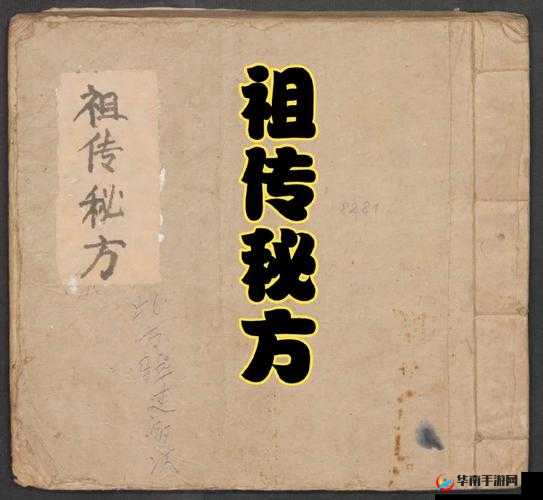 祖传秘方
祖传秘方
8281
华南手游网